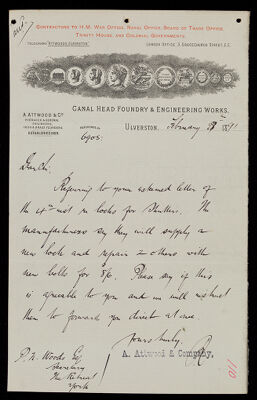 CONTRACTORS TO H.M. WAR OFFICE, NAVAL OFFICE, BOARD OF TRADE OFFICE,
TRINITY HOUSE, AND COLONIAL GOVERNMENTS.
TELEGRAMS "ATTWOODS, ULVERSTON." LONDON OFFICE, 3, GRACECHURCH STREET, E.C.
CANAL HEAD FOUNDRY & ENGINEERING WORKS,
A. ATTWOOD & Co
ENGINEERS,
ESTABLISHED
ULVERSTON, February 1891
6905.
Dear Sir:
Referring to your esteemed letter of
the 4th inst re locks for Shutters. The
manufacturers say they will supply a
new lock and repair 2 others with
new bolts for 8/6. Please say if this
is agreeable to you and we will instruct
them to forward you direct at once.
Yours truly,
A. Attwood & Company,
R
P. N. Woods Esq
Secretary
The Retreat
York
110